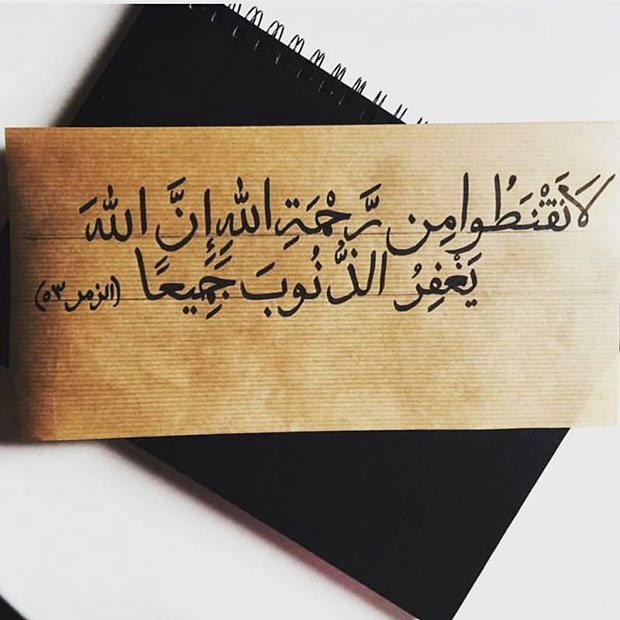 لَا تَقْنَطُوا مِن رَّحْمَةِ اللهِ إِنَّ اللهَ
يَغْفِرُ الذُّنُوبَ جَمِيعًا (الزمر ٥٣)